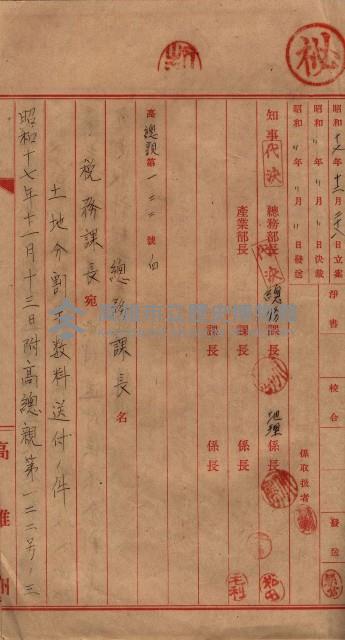 秘
昭和十七年十一月十八日立案
昭和〃年〃月〃日決裁
昭和〃年〃月〃日發送
淨書
校合
發送
係取扱者
知事代決
總務部長代決
總務課長
地理係長
產業部長
課長
係長
課長
係長
毛利
高總親第一二二號ノ四
總務課長名
稅務課長宛
土地分割手數料送付ノ件
昭和十七年十一月十三日附高總親第一二二號ノ三
高雄州
高雄市立歷史博物館